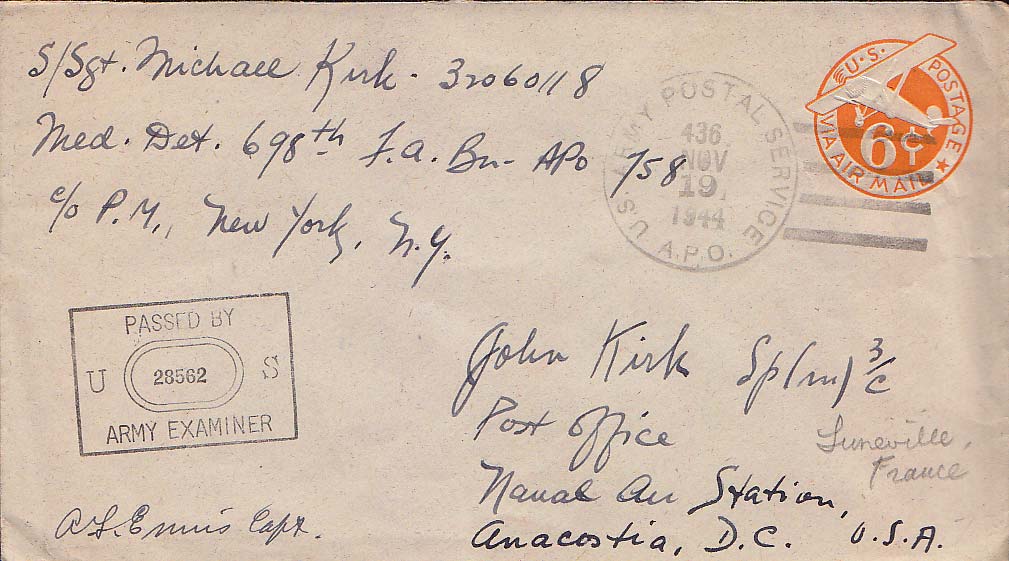 S/Sgt. Michael Kirk - 32060118
Med. Det. 698th F.A. Bn - APO 758
c/o P.M., New York, N.Y.
U.S. ARMY POSTAL SERVICE
436
NOV
19
1944
A.P.O.
U.S. POSTAGE
6¢
VIA AIR MAIL
PASSED BY
U 28562 S
ARMY EXAMINER
A. L. Ennis Capt.
John Kirk Sp(m) 3/c
Post Office
Naval Air Station,
Anacostia, D.C. U.S.A.
Luneville,
France